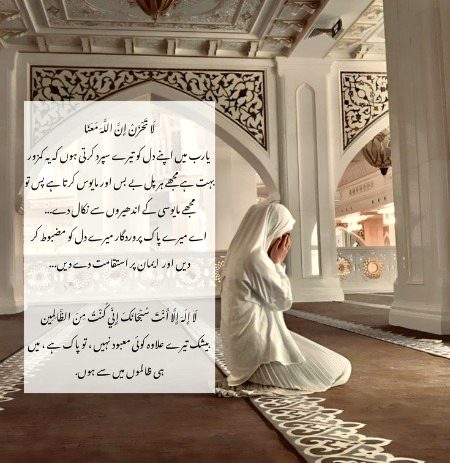 لَا تَحْزَنْ إِنَّ اللَّهَ مَعَنَا
یارب میں اپنے دل کو تیرے سپرد کرتی ہوں کہ یہ کمزور
بہت ہے مجھے ہر پل بے بس اور مایوس کرتا ہے پس تو
مجھے مایوسی کے اندھیروں سے نکال دے...
اے میرے پاک پروردگار میرے دل کو مضبوط کر
دیں اور ایمان پر استقامت دے دیں...
لَا إِلَهَ إِلَّا أَنْتَ سُبْحَانَكَ إِنِّي كُنْتُ مِنَ الظَّالِمِين
بیشک تیرے علاوہ کوئی معبود نہیں ، تو پاک ہے ، میں
ہی ظالموں میں سے ہوں.